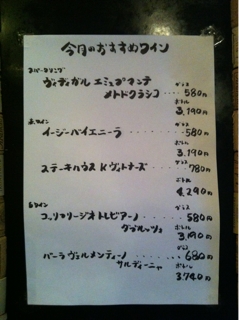 今月のおすすめワイン
スパークリング
ヴィディガル エミュプランテ グラス
メトドクラシコ ‥‥ 580円
ボトル
3,190円
赤ワイン グラス
イージーベイエニーラ ‥‥ 580円
ボトル
3,190円
グラス
ステーキハウス Kヴィントナーズ ‥‥ 780円
ボトル
4,290円
白ワイン グラス
コッリマリージオ トレビアーノ ‥‥ 580円
ダブルッツォ ボトル
3,190円
グラス
パーラ ヴェルメンティーノ ‥‥ 680円
サルディーニャ ボトル
3,740円